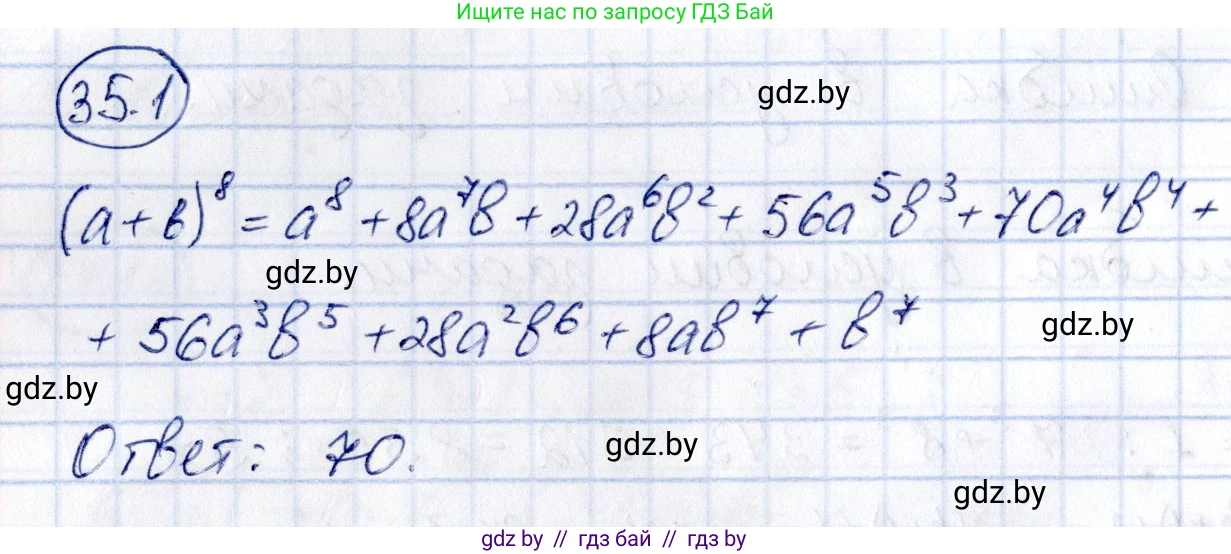 Ищите нас по запросу ГДЗ Бай
35.1
gdz.by
(а+в)⁸ = а⁸ + 8а⁷в + 28а⁶в² + 56а⁵в³ + 70а⁴в⁴ +
gdz.by
+ 56а³в⁵ + 28а²в⁶ + 8ав⁷ + в⁷
gdz.by
gdz.by
Ответ: 70.
gdz.by
gdz.by
gdz by // гдз бай // gdz by